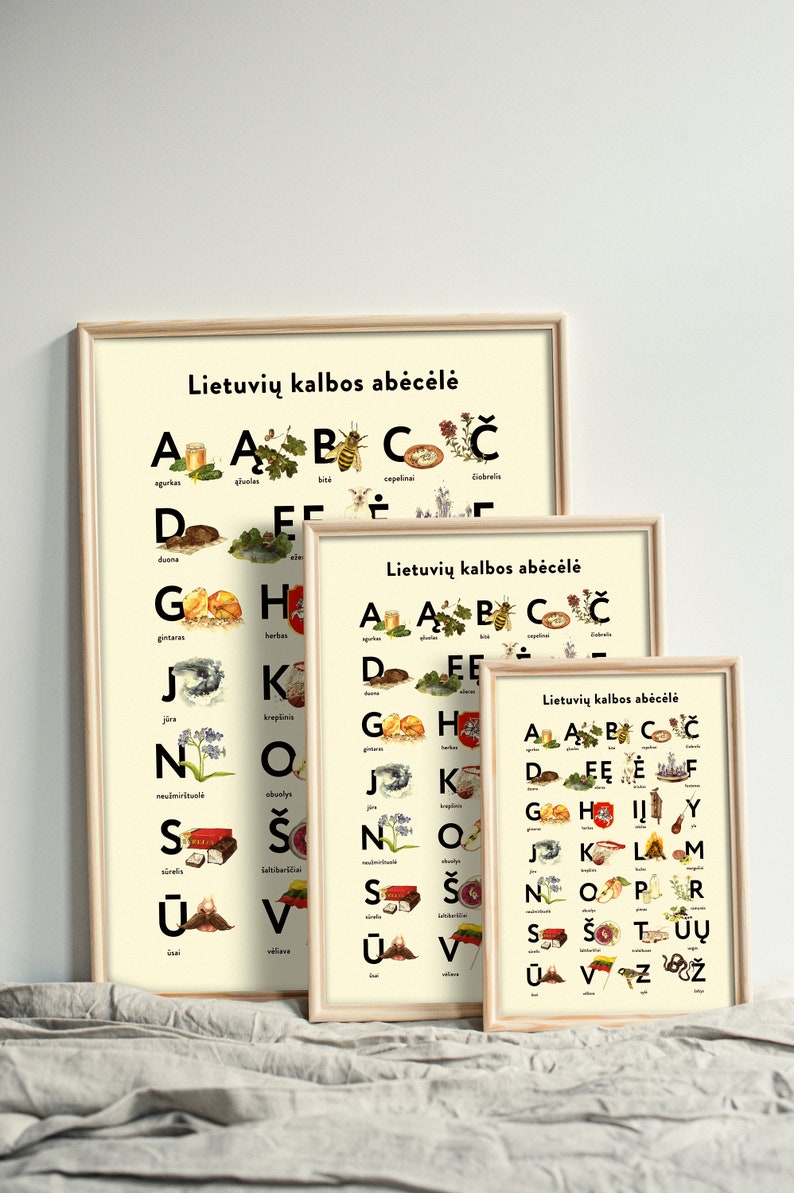 Lietuvių kalbos abėcėlė
A Ą B C Č
agurkas ąžuolas bitė cepelinai čiobrelis
D E Ė
duona
G H
gintaras herbas
J K
jūra krepšinis
N O
neužmirštuolė obuolys
S Š
sūrelis šaltibarščiai
Ū V
ūsai vėliava
Lietuvių kalbos abėcėlė
A Ą B C Č
agurkas ąžuolas bitė cepelinai čiobrelis
D E Ę Ė
duona ežeras
G H
gintaras herbas
J K
jūra krepšinis
N O
neužmirštuolė obuolys
S Š
sūrelis šaltibarščiai
Ū V
ūsai vėliava
Lietuvių kalbos abėcėlė
A Ą B C Č
agurkas ąžuolas bitė cepelinai čiobrelis
D E Ę Ė F
duona ežeras ėriukas fontanas
G H I Į Y
gintaras herbas inkilas
J K L M
jūra krepšinis laužas margučiai
N O P R
neužmirštuolė obuolys pienas
S Š T U Ų
sūrelis šaltibarščiai troleibusas uogos
Ū V Z Ž
ūsai vėliava zylė žaltys